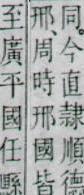 同。今直隸順德
邢、周時邢國皆
至廣平國任縣